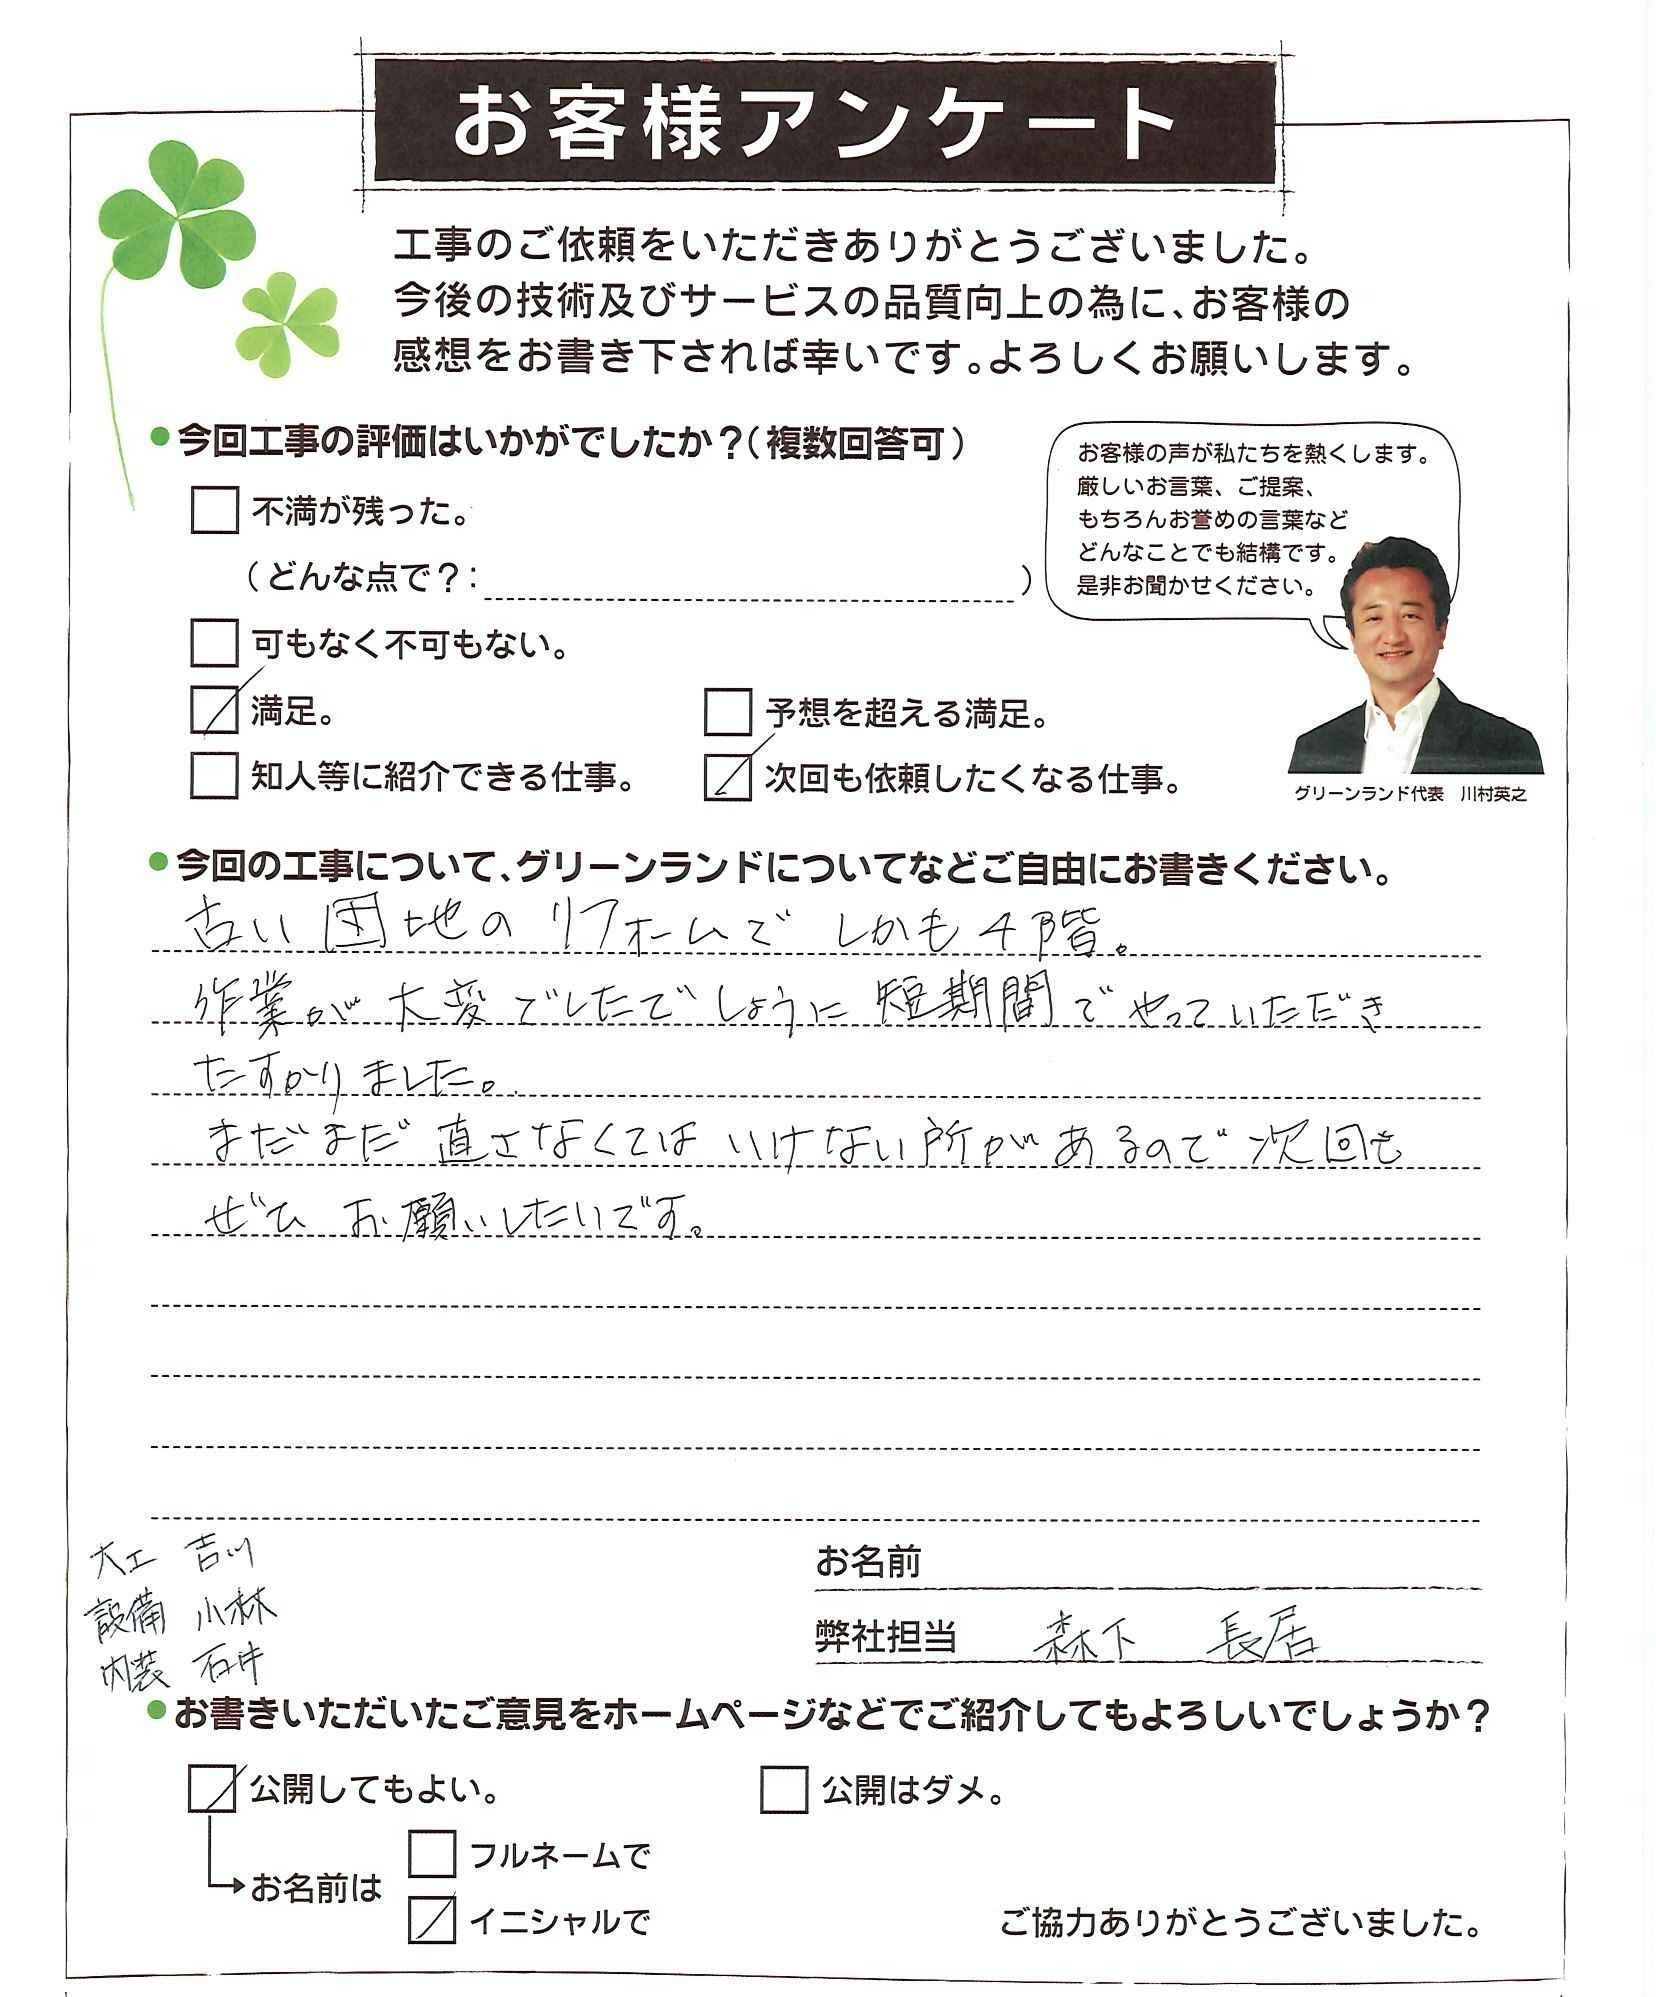 お客様アンケート
工事のご依頼をいただきありがとうございました。
今後の技術及びサービスの品質向上の為に、お客様の
感想をお書き下されば幸いです。よろしくお願いします。
●今回工事の評価はいかがでしたか？(複数回答可)
不満が残った。
(どんな点で？: )
可もなく不可もない。
満足。
予想を超える満足。
知人等に紹介できる仕事。
次回も依頼したくなる仕事。
お客様の声が私たちを熱くします。
厳しいお言葉、ご提案、
もちろんお誉めの言葉など
どんなことでも結構です。
是非お聞かせください。
グリーンランド代表 川村英之
●今回の工事について、グリーンランドについてなどご自由にお書きください。
古い団地のリフォームでしかも4階。
作業が大変でしたでしょうに短期間でやっていただき
たすかりました。
まだまだ直さなくてはいけない所があるので次回も
ぜひお願いしたいです。
大工 吉川
設備 小林
内装 石井
お名前
弊社担当 森下 長居
●お書きいただいたご意見をホームページなどでご紹介してもよろしいでしょうか？
公開してもよい。
公開はダメ。
お名前は
フルネームで
イニシャルで
ご協力ありがとうございました。